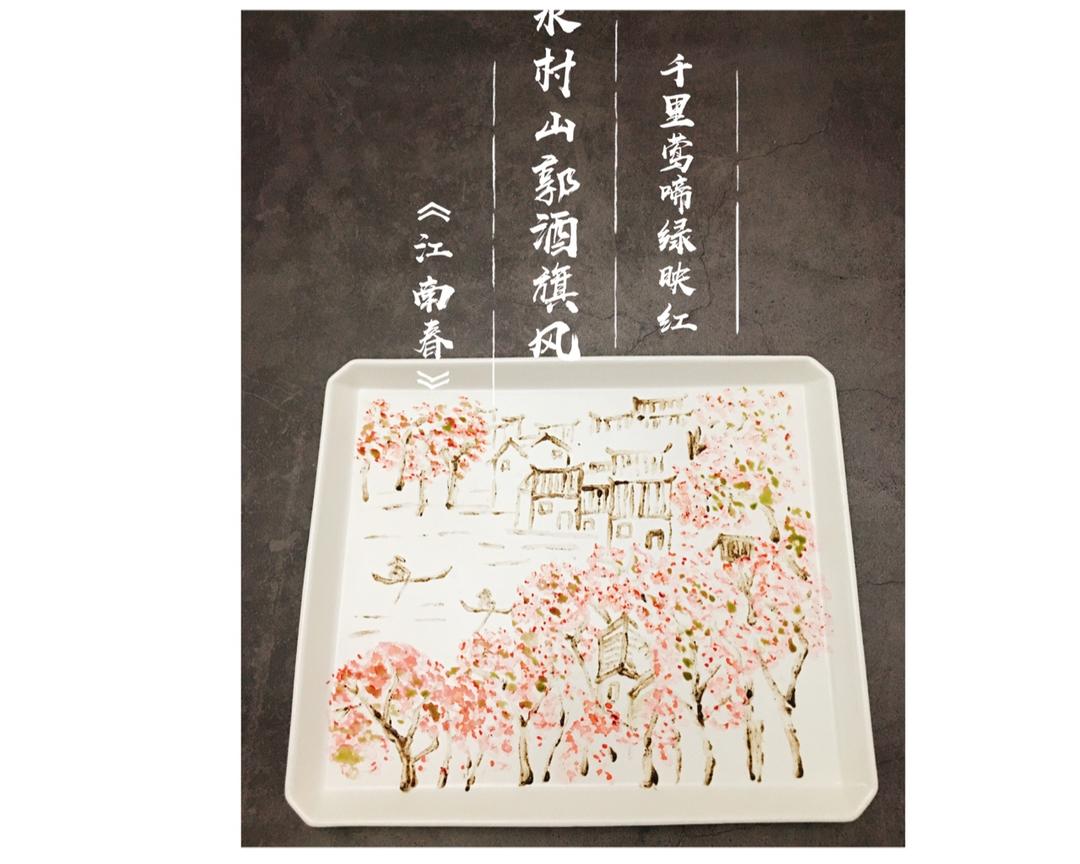 千里莺啼绿映红
水村山郭酒旗风
《江南春》